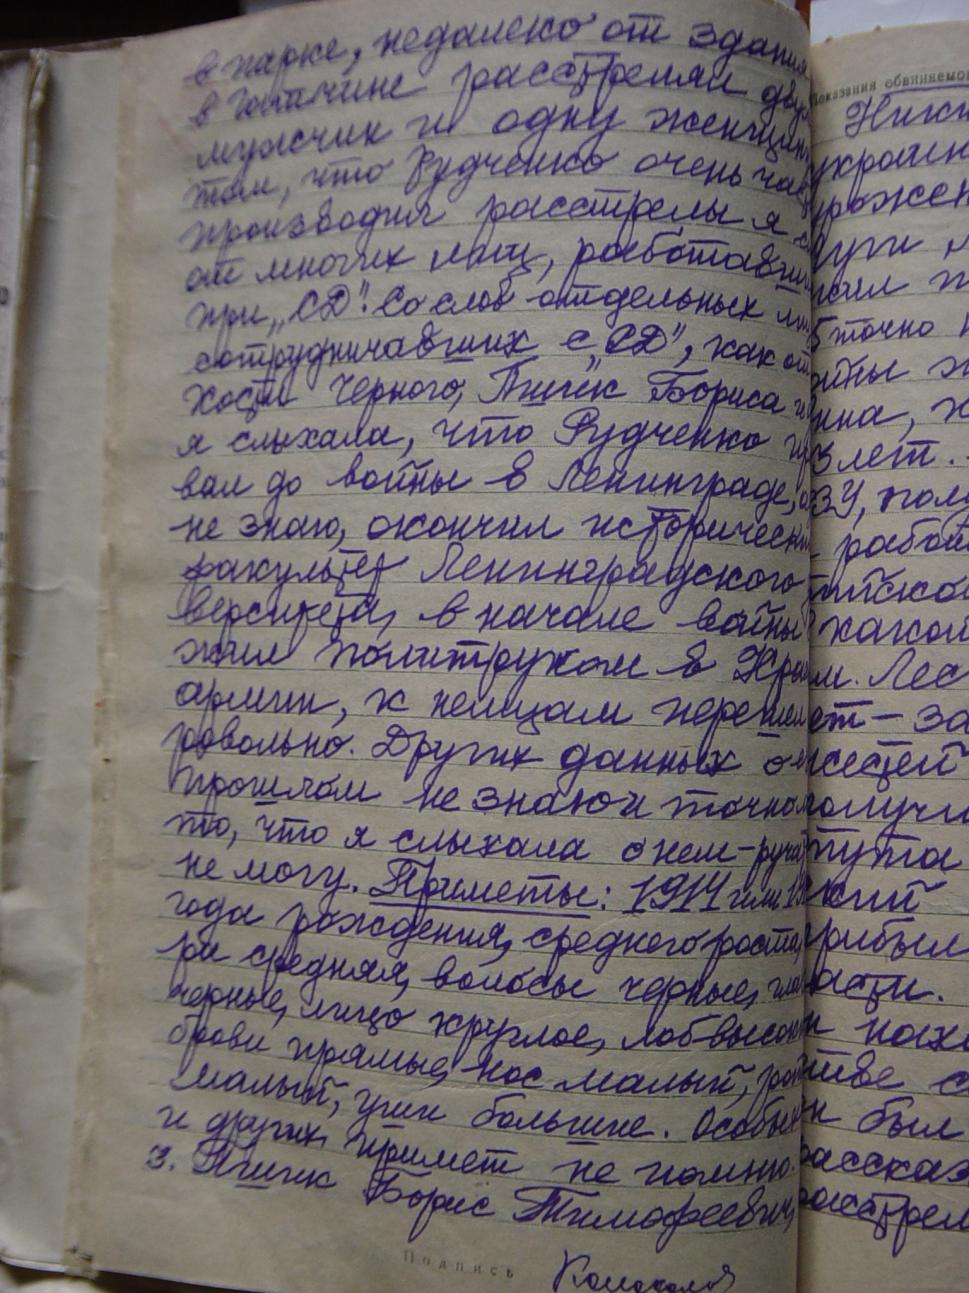 в парке, недалеко от здания
в Гатчине расстрелял двух
мужчин и одну женщину
том, что Рудченко очень час
производил расстрелы я с
от многих лиц, работавши
при „СД". Со слов отдельных ли
сотрудничавших с „СД", как от
Хости Черного, Пшик Бориса и
я слыхала, что Рудченко
вал до войны в Ленинграде,
не знаю, окончил историческ
факультет Ленинградского
верситета, в начале войны
жил политруком в Кра
армии, к немцам переш
ровольно. Других данных о
прошлом не знаю и точно
то, что я слыхала о нем - руча
не могу. Приметы: 1914 или 19
года рождения, среднего роста,
ра средняя, волосы черные, гла
черные, лицо круглое, лоб высок
брови прямые, нос малый, рот
малый, уши большие. Особых
и других примет не помню.
3. Пшик Борис Тимофеевич,
Подпись
Показания обвиняемо
Ник
украин
урожен
точно
нна,
3 лет.
ЗУ, пол
рабо
какой
м. Лес
ет - за
получ
прибыл
асти.
н был
расска
расстрел